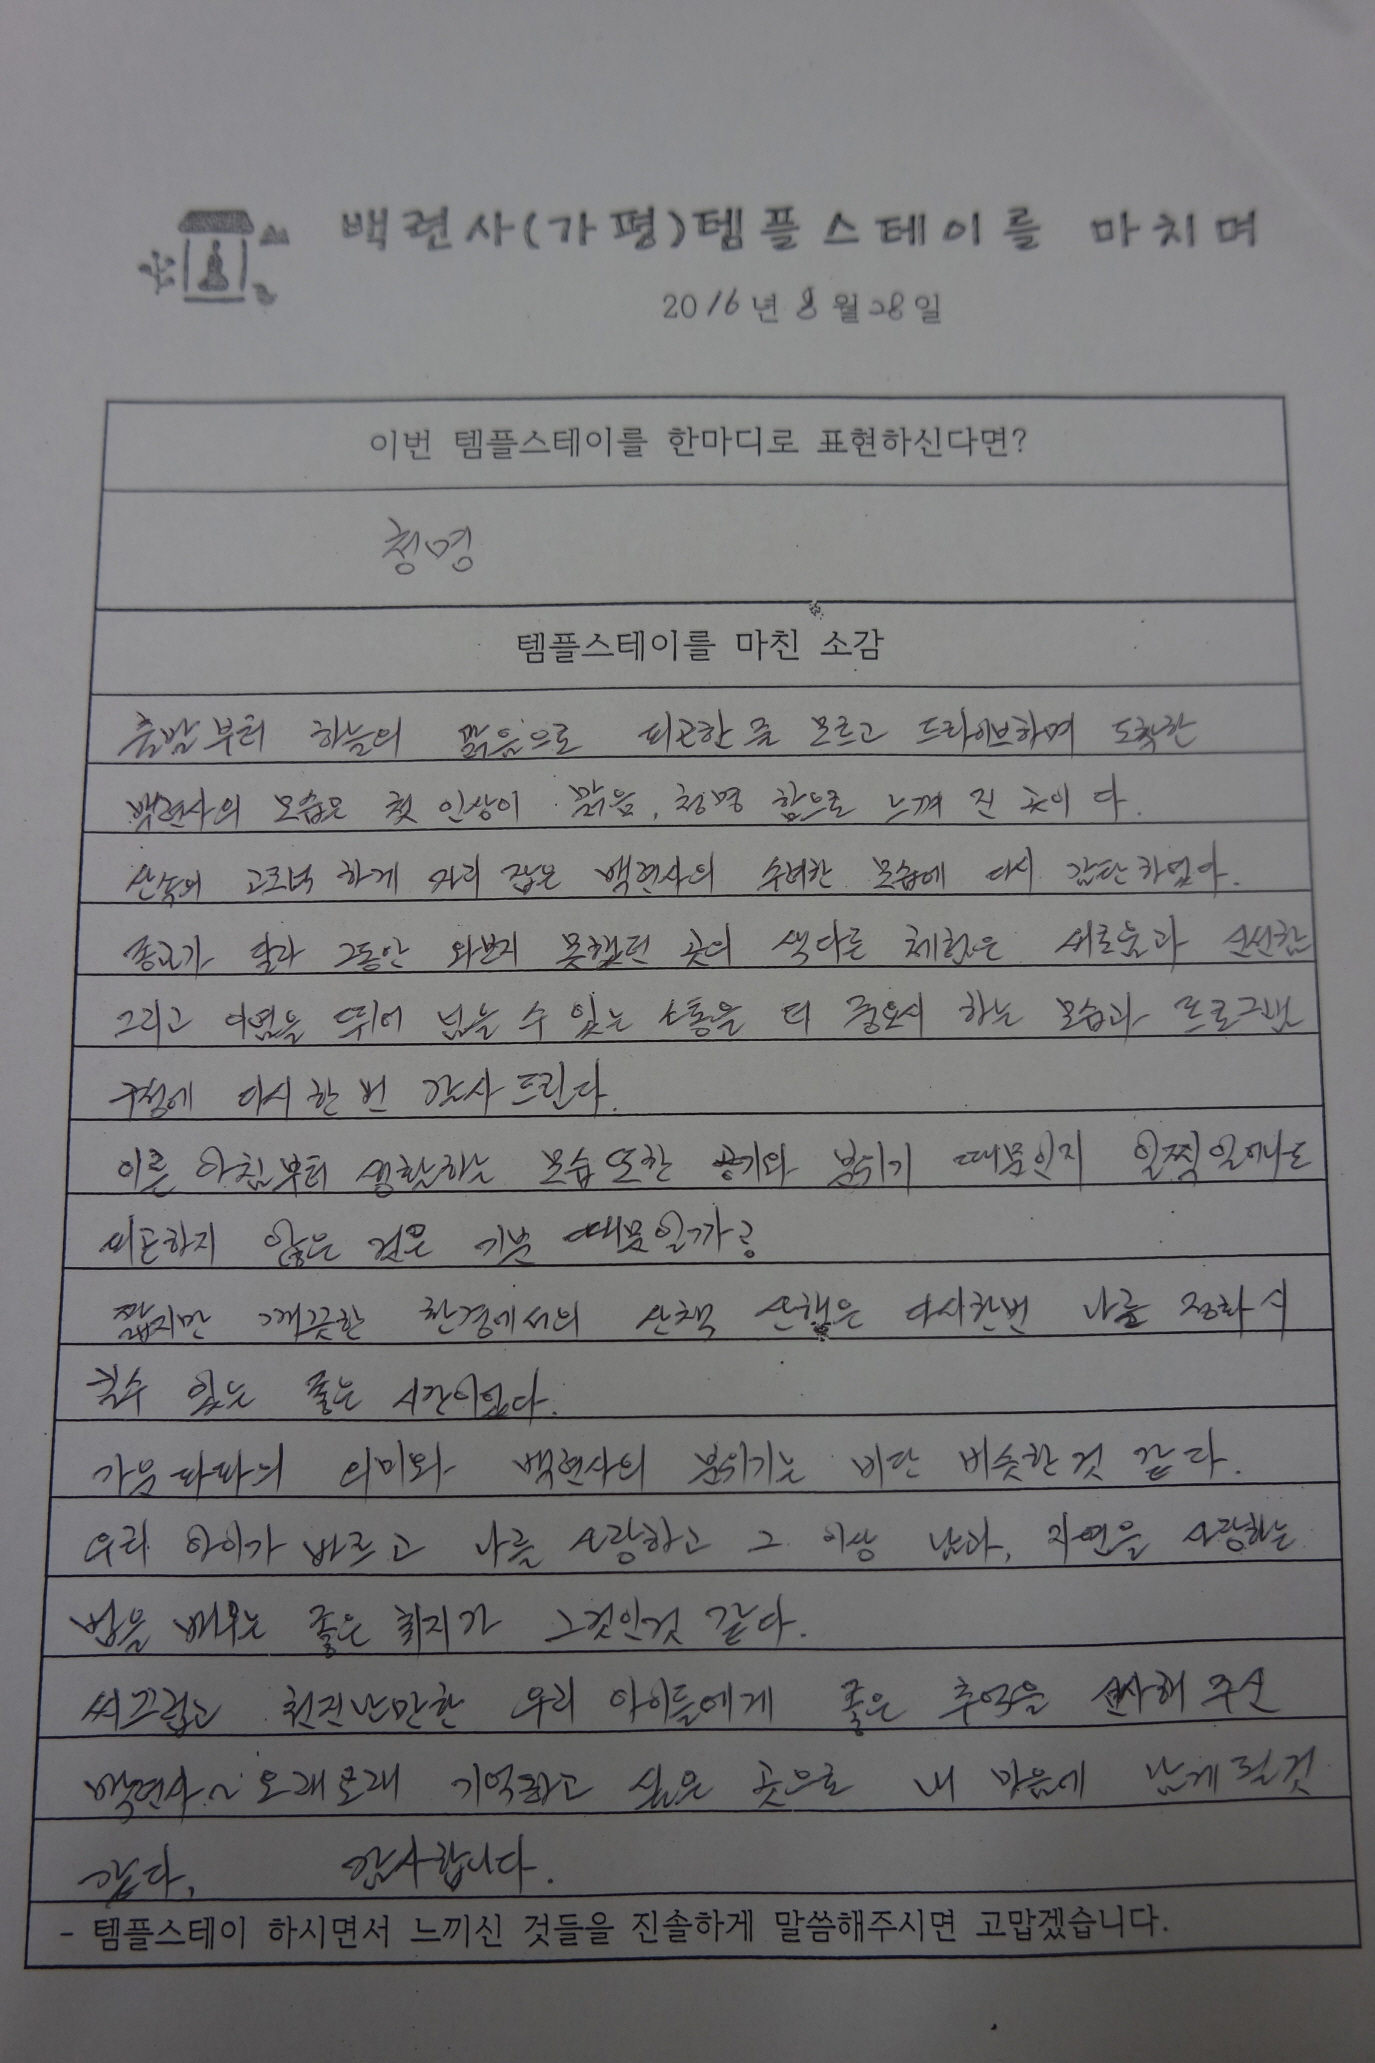 백련사(가평)템플스테이를 마치며
2016년 8월 28일
이번 템플스테이를 한마디로 표현하신다면?
청명
템플스테이를 마친 소감
출발부터 하늘의 맑음으로 피곤한 줄 모르고 드라이브하며 도착한
백련사의 모습은 첫 인상이 맑음, 청명 함으로 느껴 진 곳이 다.
산속의 고즈넉 하게 자리 잡은 백련사의 수려한 모습에 다시 감탄하였다.
종교가 달라 그동안 와보지 못했던 곳의 색다른 체험은 새로움과 신선함
그리고 이념을 뛰어 넘을 수 있는 소통을 더 중요시 하는 모습과 프로그램
구성에 다시 한 번 감사 드린다.
이른 아침부터 생활하는 모습 또한 공기와 분위기 때문인지 일찍 일어나도
피곤하지 않은 것은 기분 때문일까?
짧지만 깨끗한 환경에서의 산책 산행은 다시한번 나를 정화 시
킬수 있는 좋은 시간이었다.
가유 의미와 백련사의 분위기는 비단 비슷한것 같다.
우리 아이가 바르고 나를 사랑하고 그 이상 남과, 자연을 사랑하는
법을 배우는 좋은 취지가 그것인것 같다.
씨끄럽고 천진난만한 우리 아이들에게 좋은 추억을 선사해 주신
백련사~ 오래오래 기억하고 싶은 곳으로 내 마음에 남게될것
같다. 감사합니다.
- 템플스테이 하시면서 느끼신 것들을 진솔하게 말씀해주시면 고맙겠습니다.